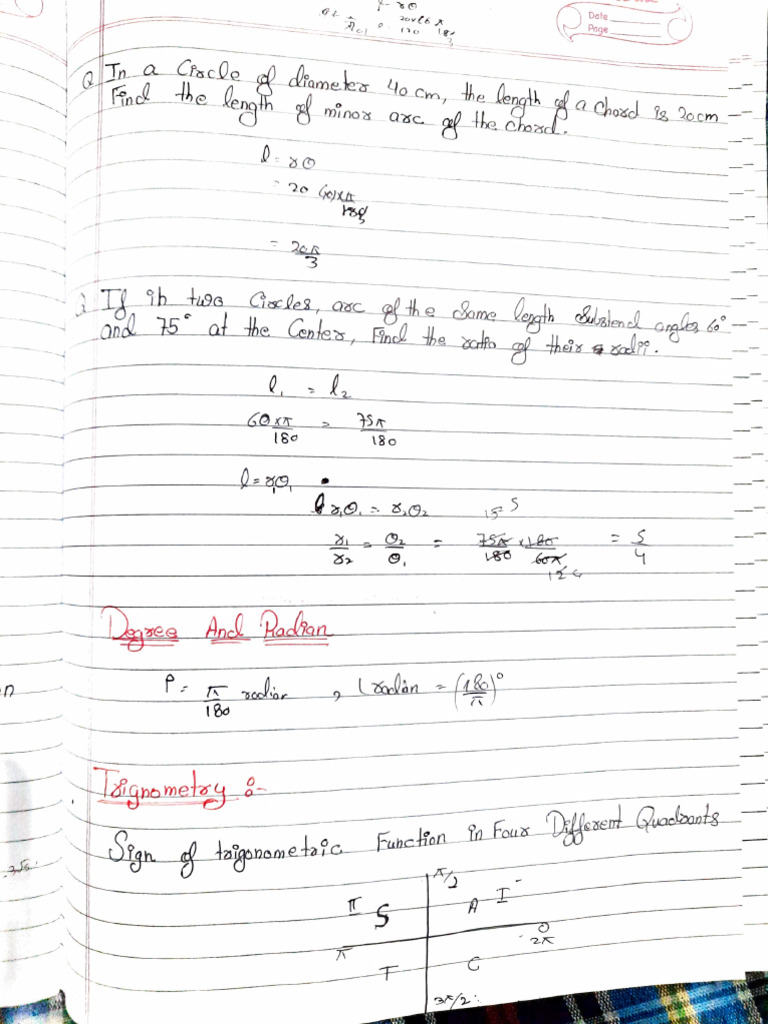 Date
Page
Q In a Circle of diameter 40 cm, the length of a chord is 20cm
Find the length of minor arc of the chord.
l = rθ
= 20 60×π/180
= 20π/3
If ih two Circles, arc of the Same length Substend angles 60°
and 75° at the Center, Find the ratio of their radii.
l₁ = l₂
60×π/180 = 75π/180
l = r₁θ₁
r₁θ₁ = r₂θ₂
r₁/r₂ = θ₂/θ₁ = 75π/180 × 180/60π = 5/4
Degree And Radian
1° = π/180 radian , 1 radian = (180/π)°
Trignometry :-
Sign of trigonometric Function in Four Different Quadrants
π/2
II S A I
π 0
2π
T C
3π/2